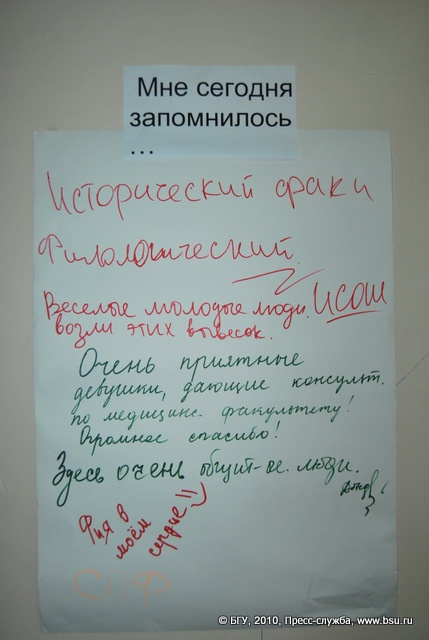 Мне сегодня
запомнилось
...
Исторический факи
Филологический
Веселые молодые люди. ИСОШ
возли этих вывесок.
Очень приятные
девушки, дающие консульт.
по медицинс. факультету!
Огромное спасибо!
Здесь очень общит-ые люди.
Фия в
моём
сердце!!)
© БГУ, 2010, Пресс-служба, www.bsu.ru